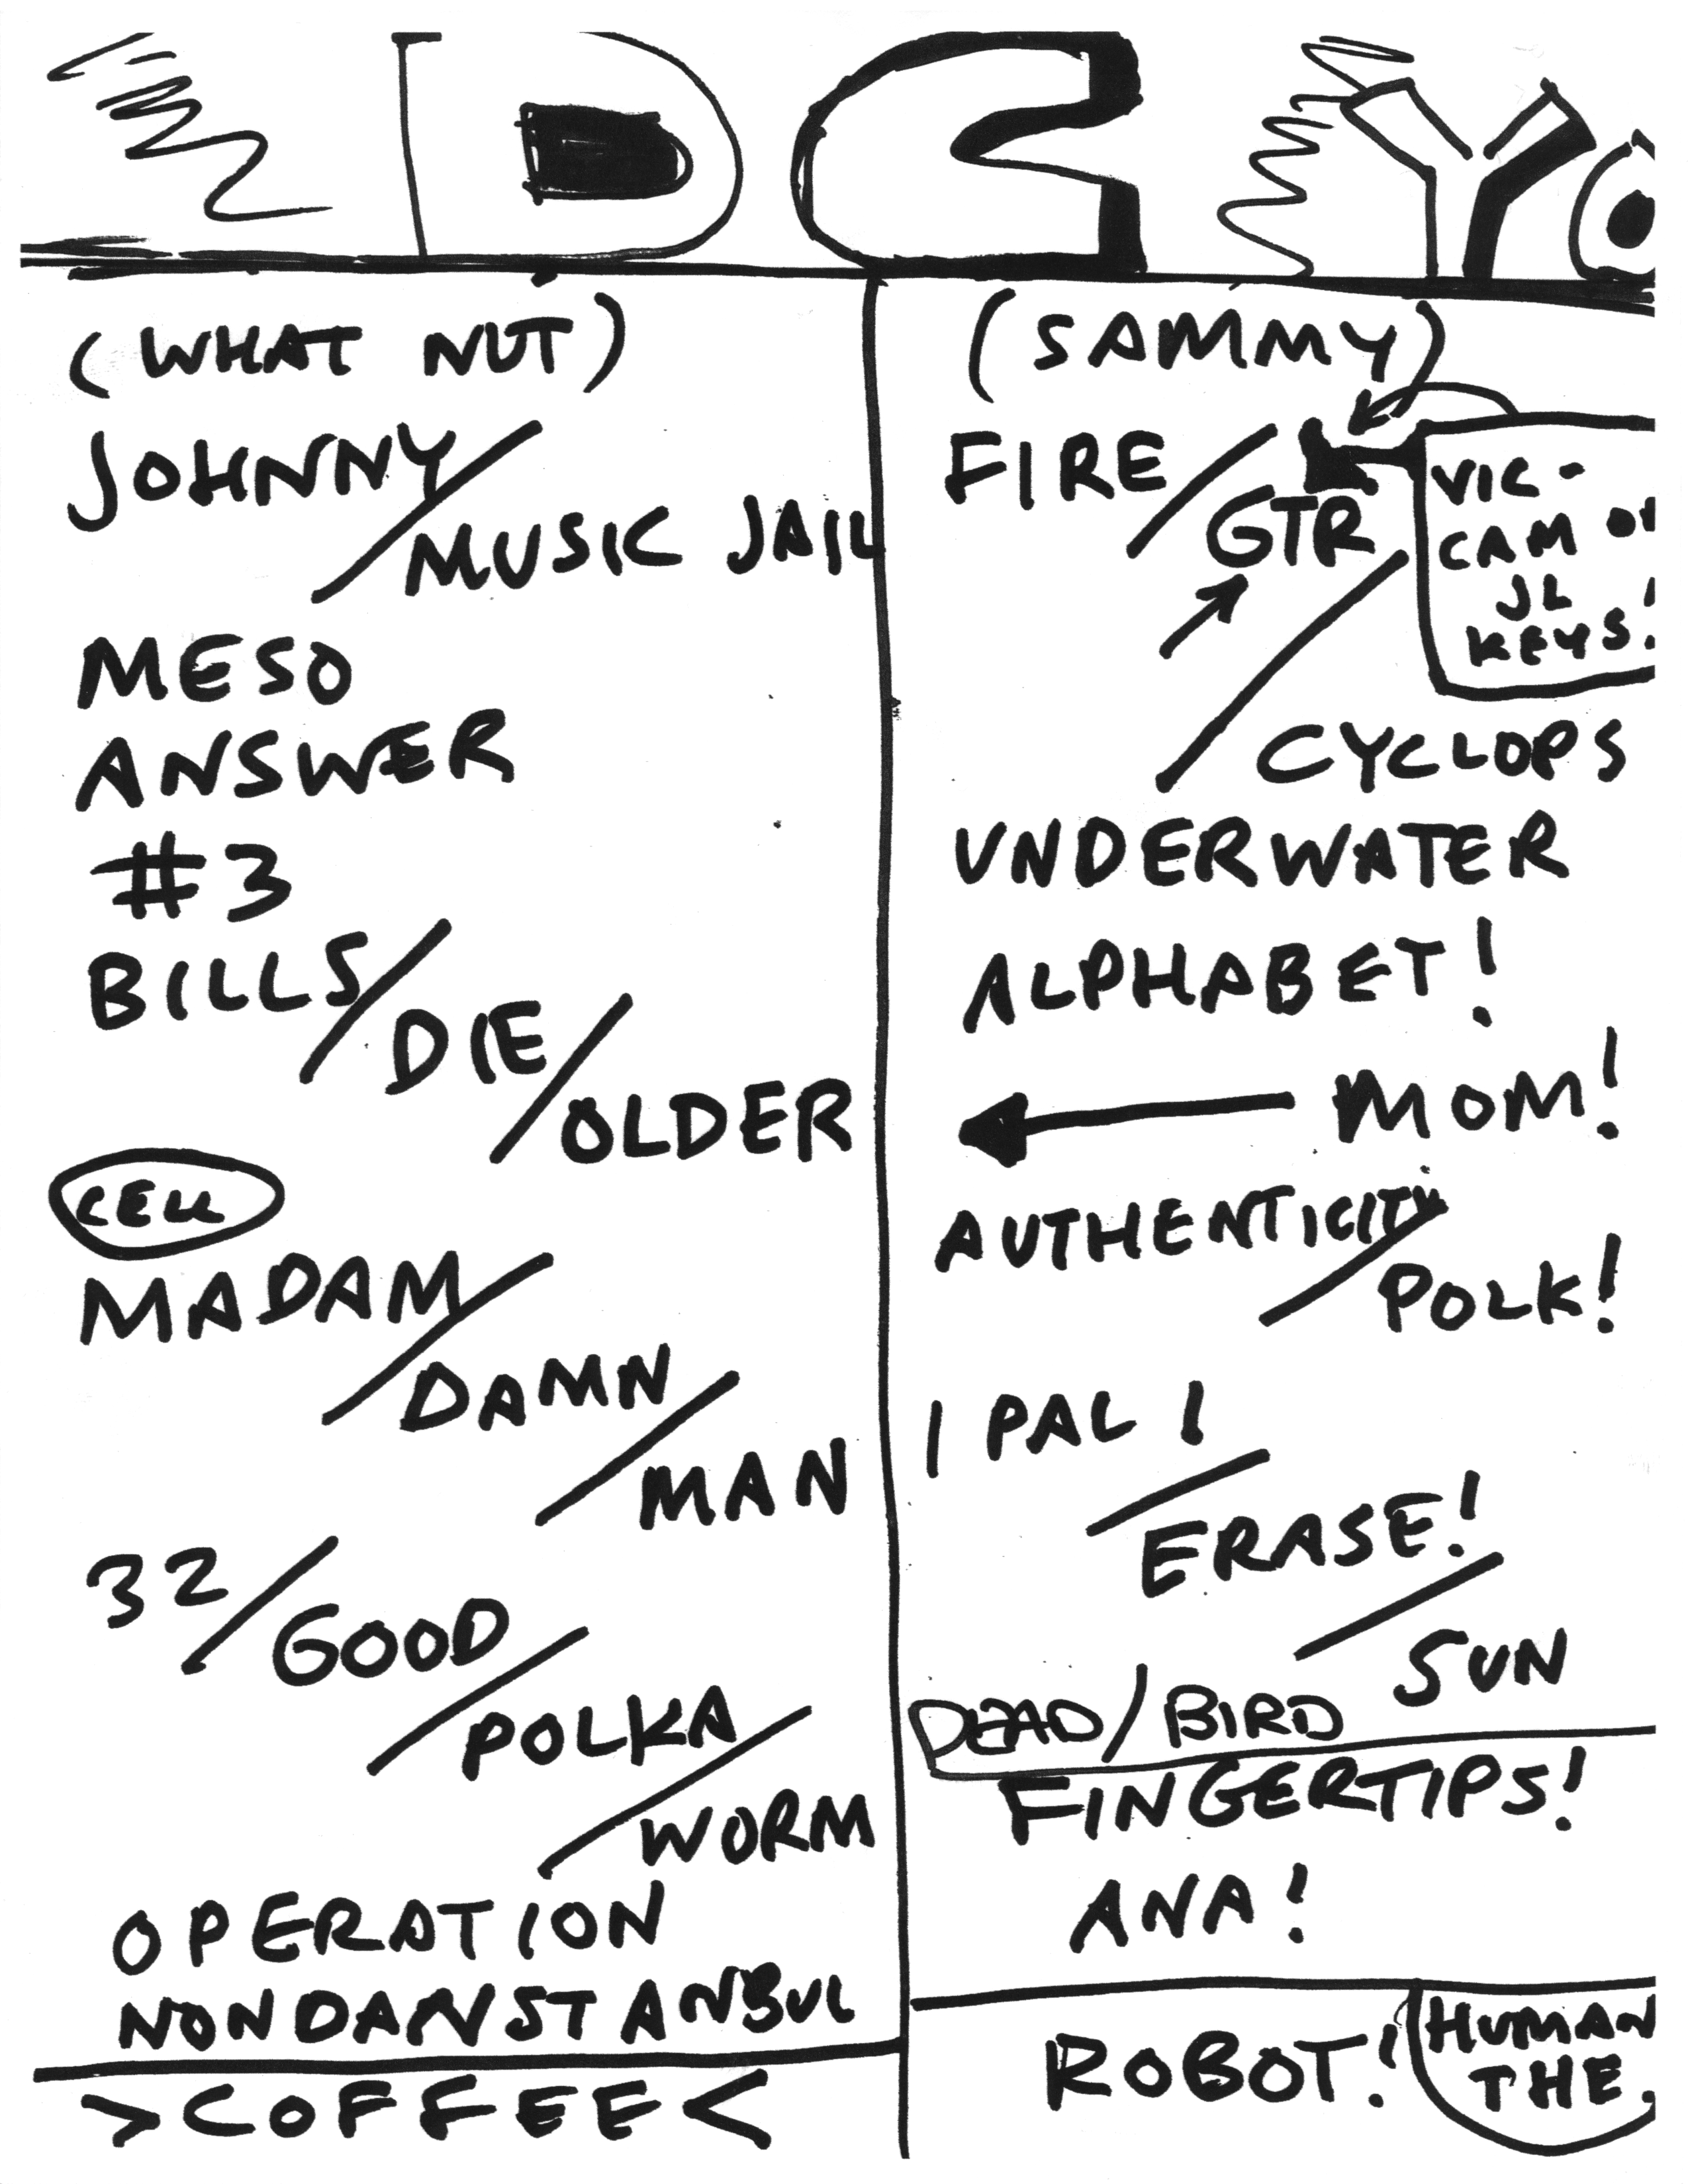 DC YO
(WHAT NUT)
JOHNNY/
MUSIC JAIL
MESO
ANSWER
#3
BILLS/
DIE/
OLDER
CELL
MADAM/
DAMN/
MAN
32/
GOOD/
POLKA/
WORM
OPERATION
NONDANSTANBUL
>COFFEE<
(SAMMY)
FIRE/
GTR/
VIC-
CAM
JL
KEYS!
CYCLOPS
UNDERWATER
ALPHABET!
MOM!
AUTHENTICITY/
POLK!
1 PAL!/
ERASE!/
SUN
DEAD/BIRD
FINGERTIPS!
ANA!
ROBOT!
HUMAN
THE